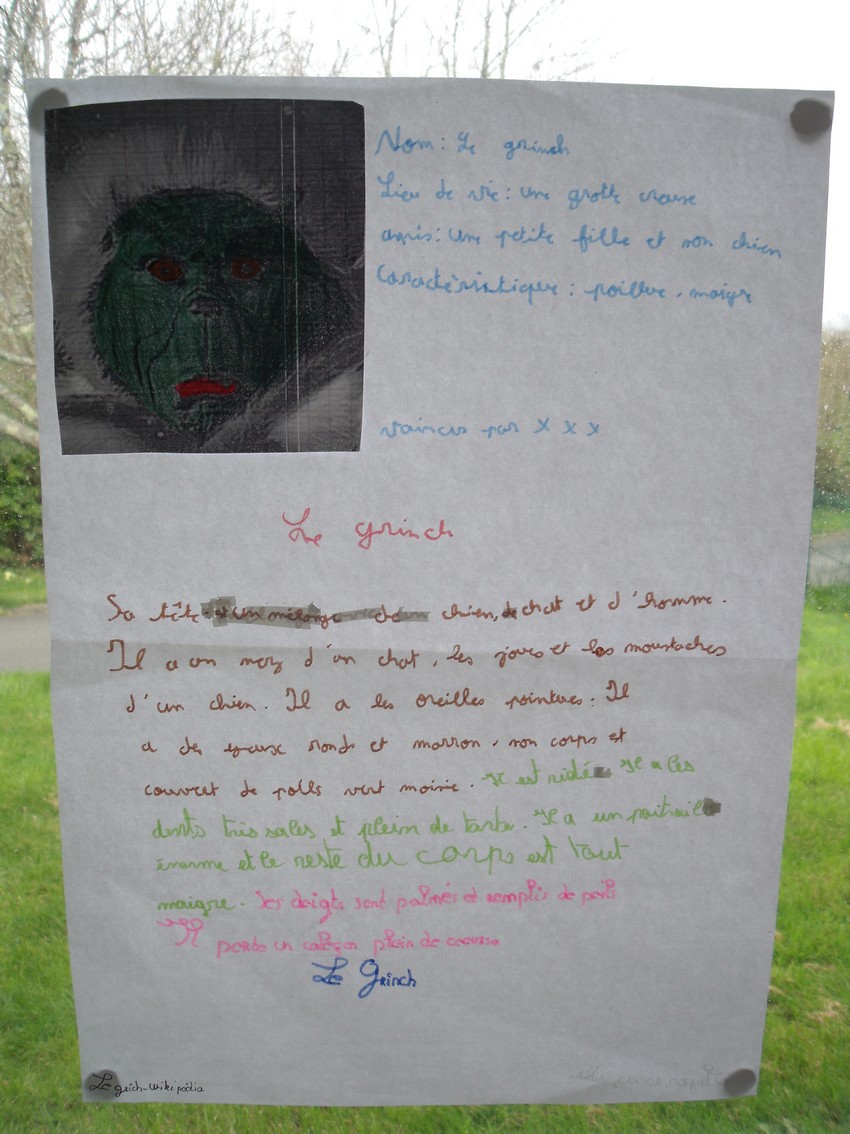 Nom: Le grinch
Lieu de vie: une grotte creuse
amis: une petite fille et son chien
Caractèristique: poillue, maigre
vaincus par x x x
Le grinch
Sa tête est un mélange de chien, de chat et d'homme.
Il a un nez d'un chat, les joues et les moustaches
d'un chien. Il a les oreilles pointues. Il
a des yeux ronds et marron, son corps est
couvert de poils vert moisie. Il est ridé Il a les
dents très sales et plein de tartre. Il a un poitrail
énorme et le reste du corps est tout
maigre. Ses doigts sont palmés et remplis de poils
Il porte un caleçon plein de
Le Grinch
Le grich-Wikipédia